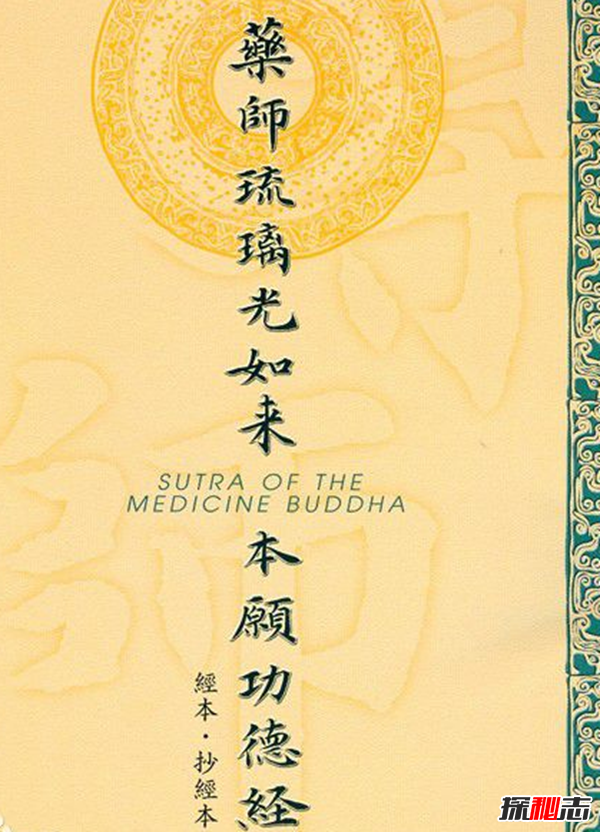 藥師琉璃光如来
SUTRA OF THE
MEDICINE BUDDHA
本願功德経
經本·抄經本
探秘志